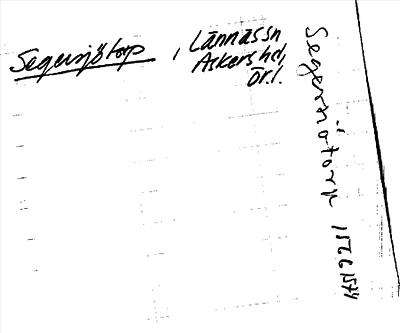 Segersjötorp, Lännäs sn
Askers hd,
Ör.l.
Segersjötorp